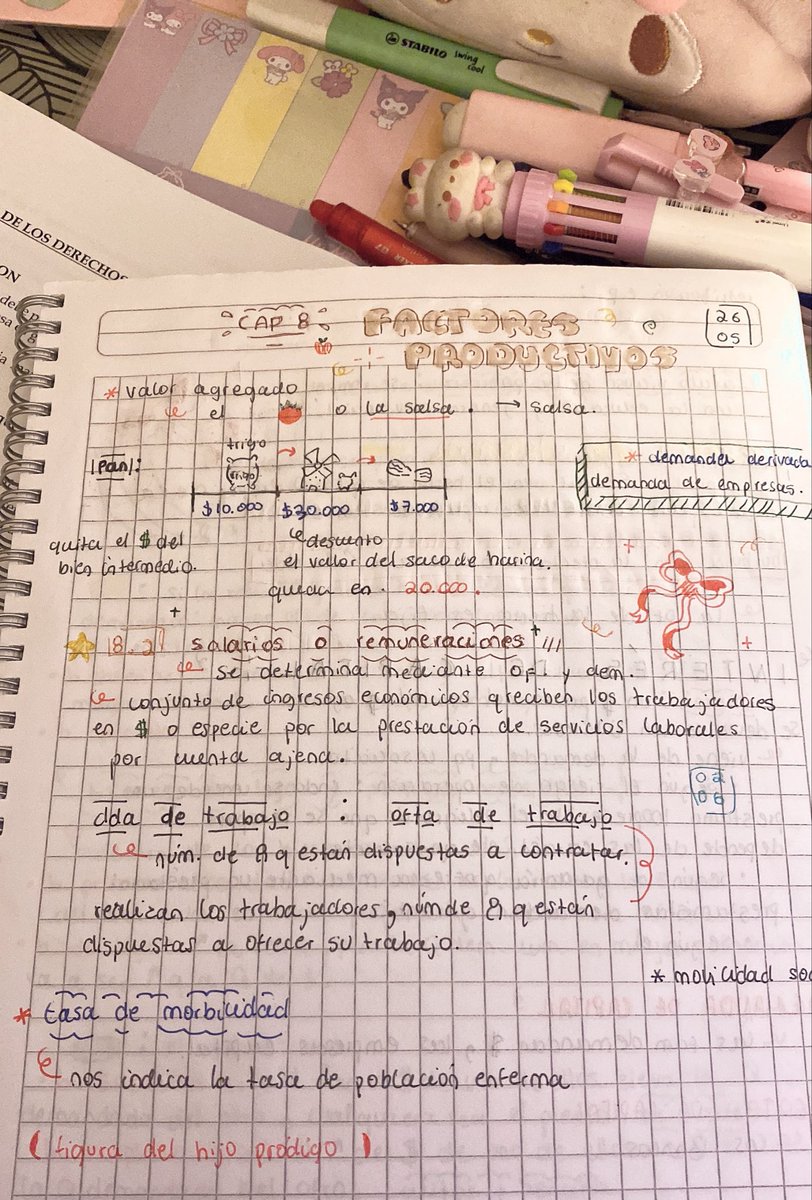 STABILO swing cool
DE LOS DERECHOS
CAP 8 FACTORES 26
PRODUCTIVOS 05
* valor agregado
el o la salsa. → salsa.
trigo
|Pan|: trigo
* demanda derivada
demanda de empresas.
$10.000 $30.000 $7.000
quita el $ del
bien intermedio.
descuento
el valor del saco de harina.
queda en. 20.000.
8.2 salarios o remuneraciones
se determina mediante of. y dem.
conjunto de ingresos económicos q reciben los trabajadores
en $ o especie por la prestación de servicios laborales
por cuenta ajena.
02
06
dda de trabajo : ofta de trabajo
núm. de q están dispuestas a contratar.
realizan los trabajadores, núm de q están
dispuestas a ofrecer su trabajo.
* movilidad
* tasa de morbilidad
nos indica la tasa de población enferma
(figura del hijo prodigo)